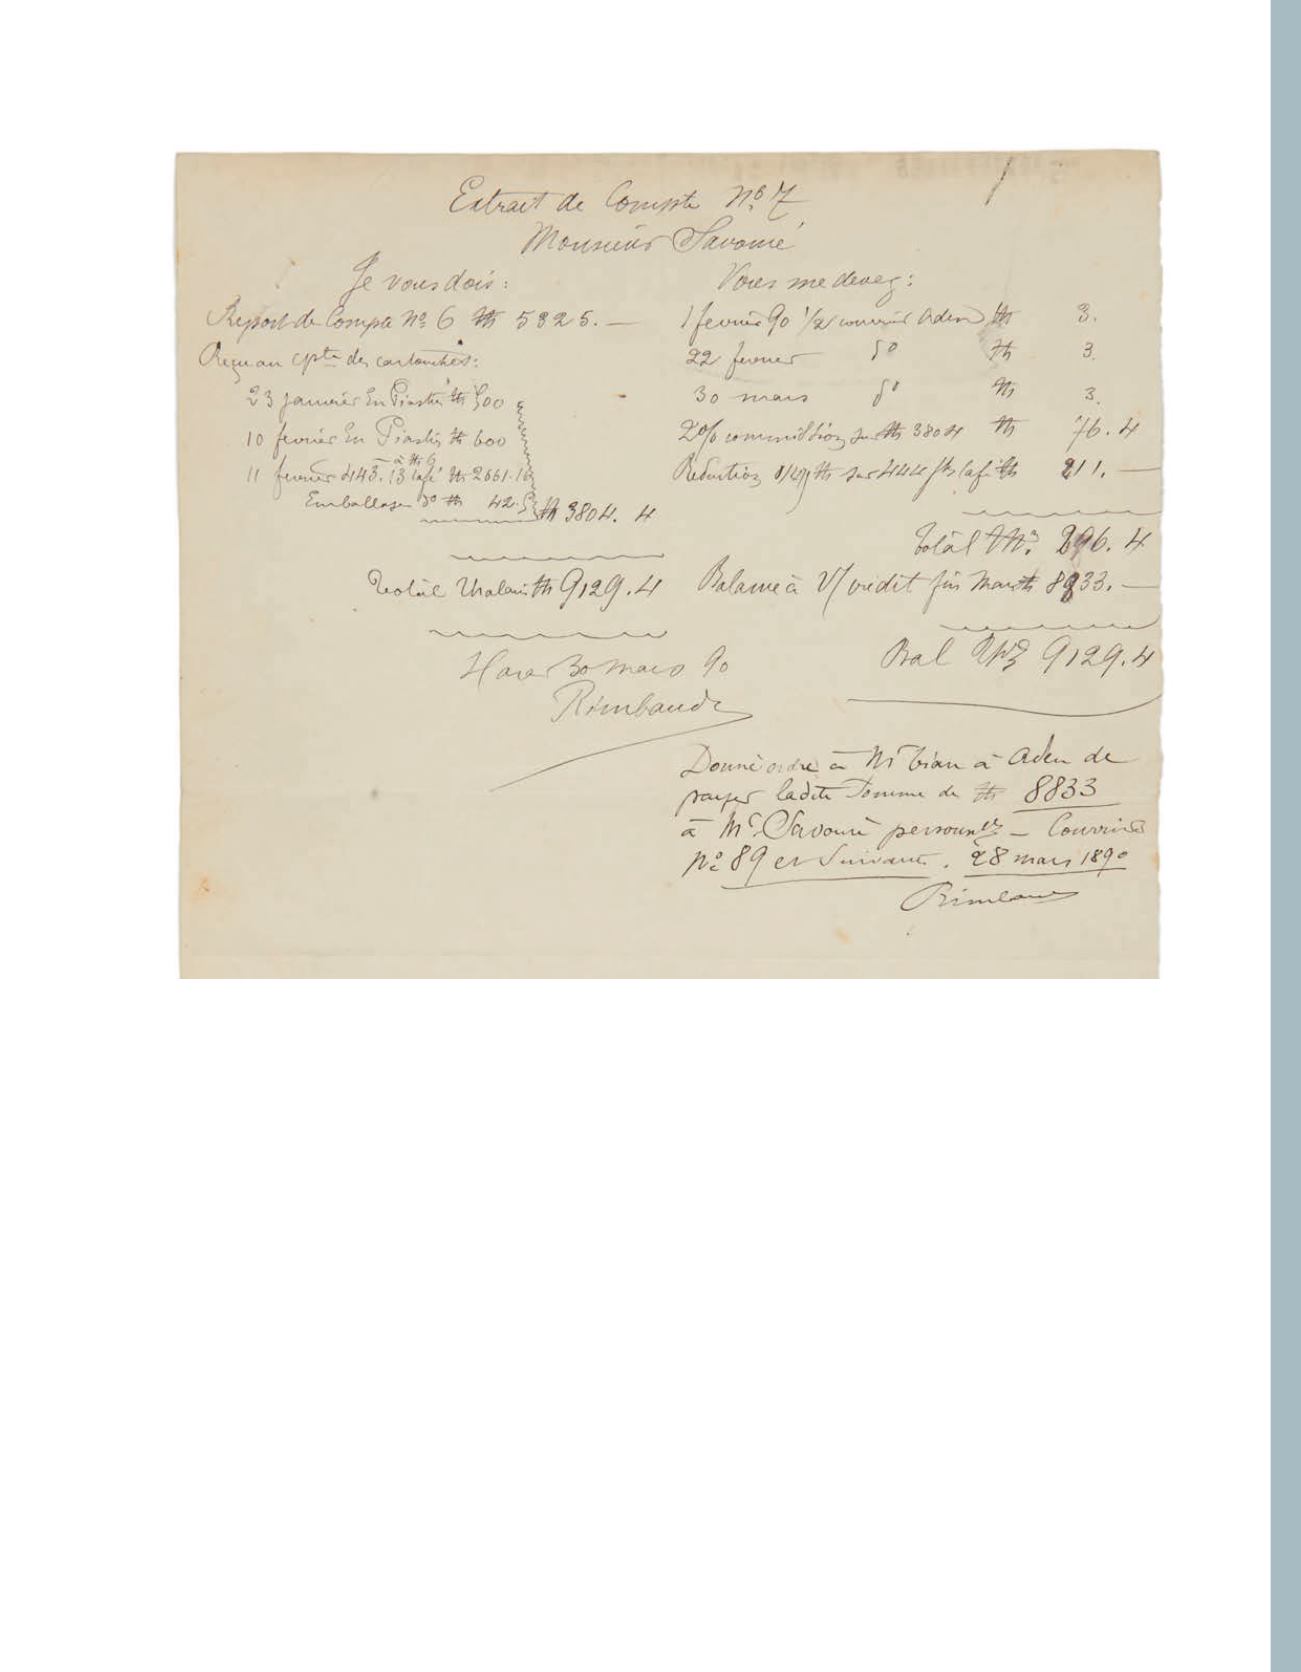 Extrait de Compte N° 7
Monsieur Savouré
Je vous dois :
Report de Compte N° 6 th 5325. —
Reçu au cpte des cartouches :
23 janvier En Piastres th 500
10 février En Piastres th 600
à th 6
11 février 443.13 café th 2661.16
Emballage d° th 42.
th 3804. 4
Total Thalaris th 9129.4
Harar 30 mars 90
Rimbaud
Vous me devez :
1 février 90 1/2 courrier Aden th 3.
22 février d° th 3.
30 mars d° th 3.
2% commission sur th 3804 th 76.4
Réduction th sur 444 café th 211. —
Total Ths 296.4
Balance à V/ crédit fin Mars th 8833. —
Bal Ths 9129.4
Donné ordre à Mr Tian à Aden de
payer ladite Somme de th 8833
à Mr Savouré — Courrier
N° 89 et Suivants. 28 mars 1890
Rimbaud